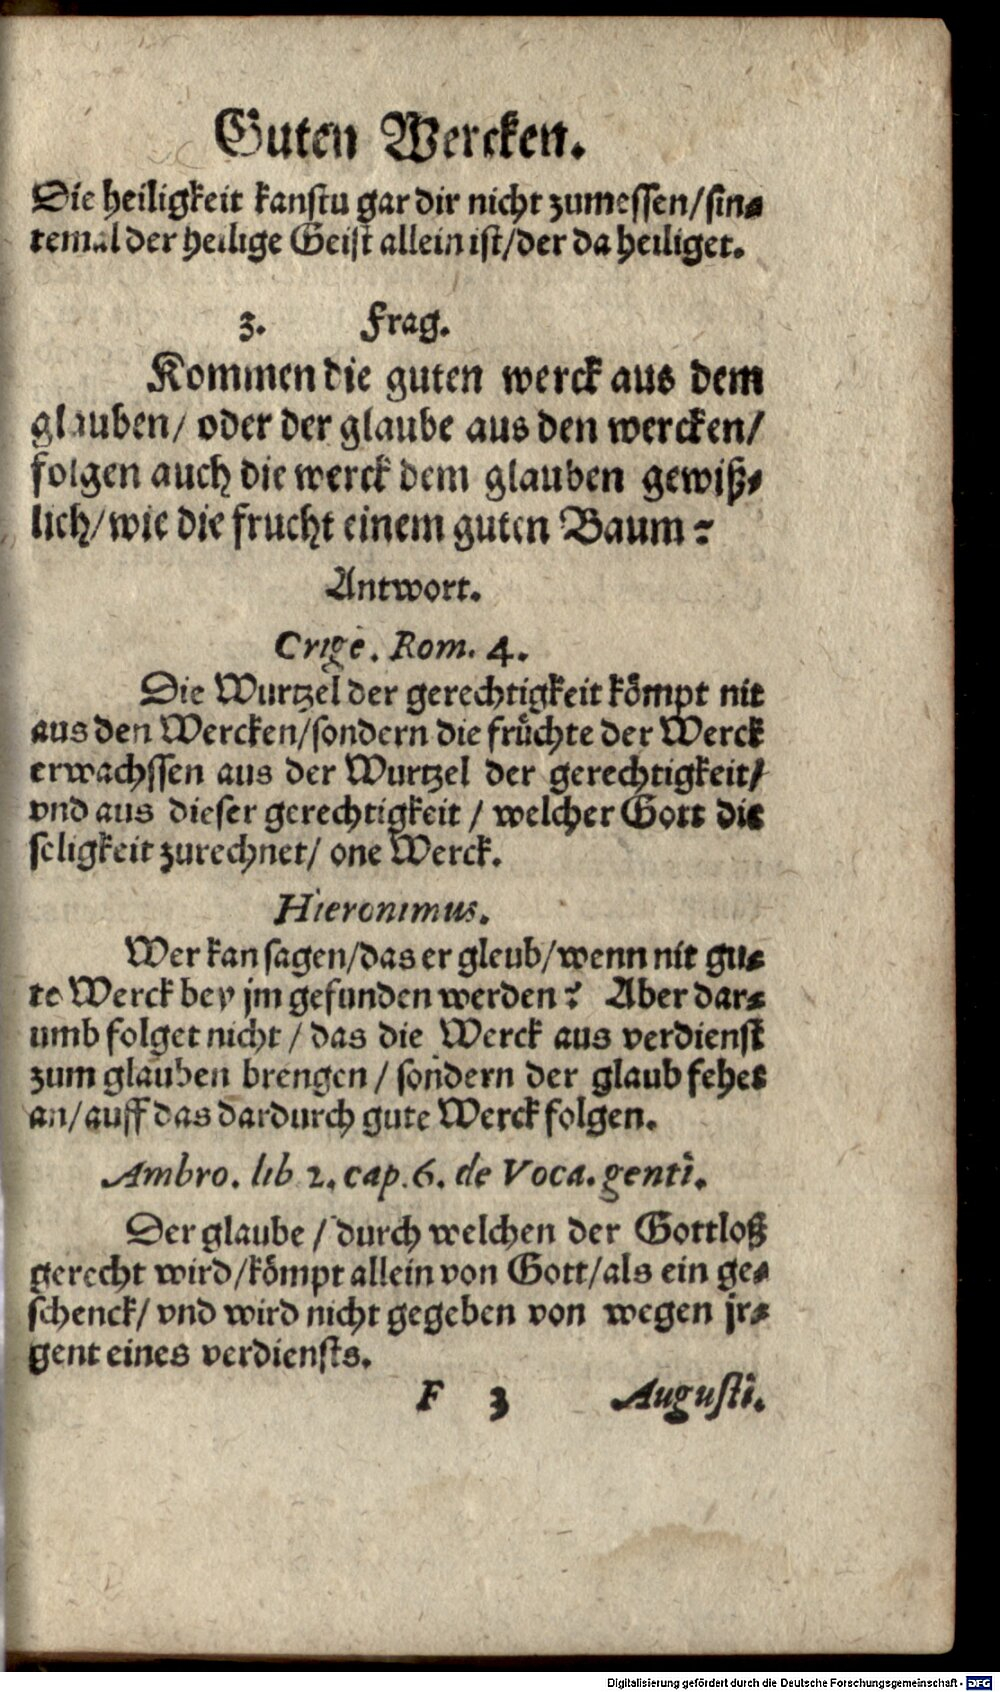 Guten Wercken.
Die heiligkeit kanstu gar dir nicht zumessen/sin⸗
temal der heilige Geist allein ist/der da heiliget.
3. Frag.
Kommen die guten werck aus dem
glauben/ oder der glaube aus den wercken/
folgen auch die werck dem glauben gewiß⸗
lich/wie die frucht einem guten Baum?
Antwort.
Orige. Rom. 4.
Die Wurtzel der gerechtigkeit kömpt nit
aus den Wercken/sondern die früchte der Werck
erwachssen aus der Wurtzel der gerechtigkeit/
vnd aus dieser gerechtigkeit / welcher Gott die
seligkeit zurechnet/ one Werck.
Hieronimus.
Wer kan sagen/das er gleub/wenn nit gu⸗
te Werck bey jm gefunden werden? Aber dar⸗
umb folget nicht / das die Werck aus verdienst
zum glauben brengen / sondern der glaub fehet
an/auff das dardurch gute Werck folgen.
Ambro. lib 2. cap.6. de Voca. genti.
Der glaube / durch welchen der Gottloß
gerecht wird/kömpt allein von Gott/als ein ge⸗
schenck/ vnd wird nicht gegeben von wegen jr⸗
gent eines verdiensts.
F 3 Augusti.
Digitalisierung gefördert durch die Deutsche Forschungsgemeinschaft - DFG